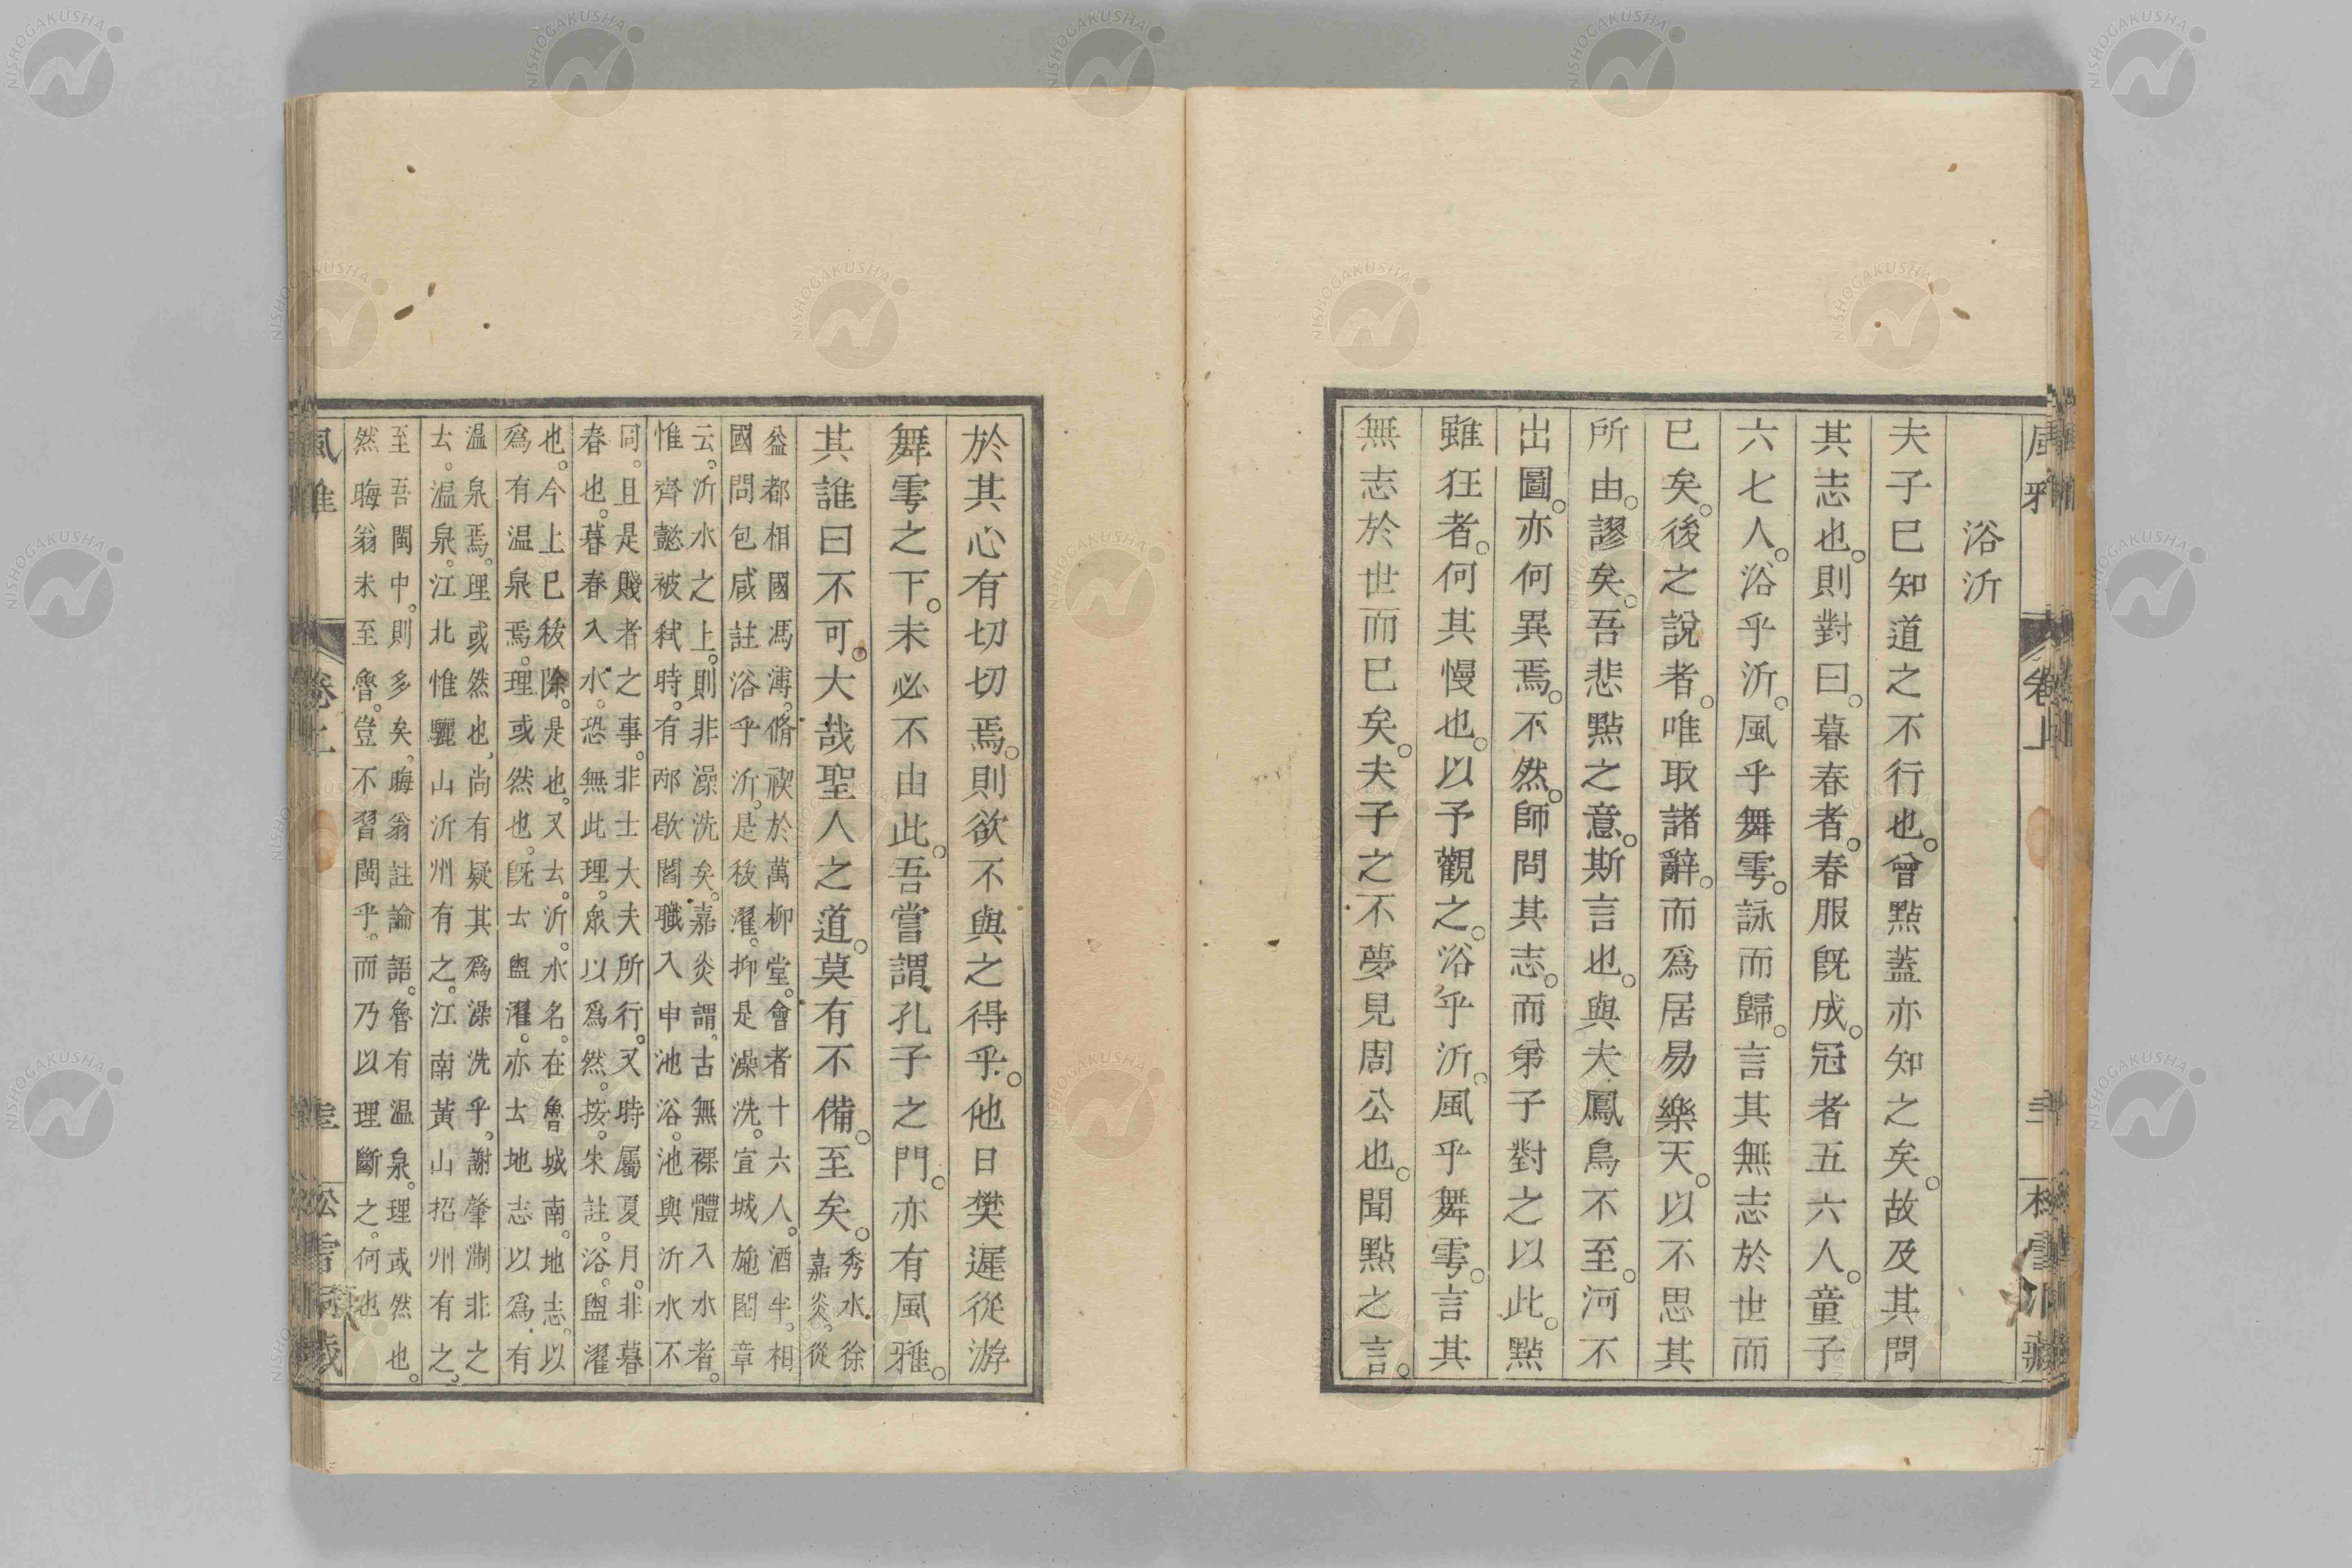 浴沂
夫子已知道之不行也。曾點蓋亦知之矣。故及其問
其志也。則對曰。暮春者。春服既成。冠者五六人。童子
六七人。浴乎沂。風乎舞雩。詠而歸。言其無志於世而
已矣。後之說者。唯取諸辭。而爲居易樂天。以不思其
所由。謬矣。吾悲點之意。斯言也。與夫鳳鳥不至。河不
出圖。亦何異焉。不然。師問其志。而弟子對之以此。點
雖狂者。何其慢也。以予觀之。浴乎沂。風乎舞雩。言其
無志於世而已矣。夫子之不夢見周公也。聞點之言。
於其心有切切焉。則欲不與之得乎。他日樊遲從游
舞雩之下。未必不由此。吾嘗謂孔子之門。亦有風雅。
其誰曰不可。大哉聖人之道。莫有不備。至矣。
秀水徐
嘉炎。從
益都相國馮溥。脩禊於萬柳堂。會者十六人。酒半。相
國問包咸註浴乎沂。是祓濯。抑是澡洗。宣城施閏章
云。沂水之上。則非澡洗矣。嘉炎謂。古無裸體入水者。
惟齊懿被弒時。有邴歜閻職入申池浴。池與沂水不
同。且是賤者之事。非士大夫所行。又時屬夏月。非暮
春也。暮春入水。恐無此理。衆以爲然。按。朱註。浴。盥濯
也。今上巳祓除。是也。又云。沂。水名。在魯城南。地志。以
爲有温泉焉。理或然也。既云盥濯。亦云地志以爲有
温泉焉。理或然也。尚有疑其爲澡洗乎。謝肇淛非之
云。温泉。江北惟驪山沂州有之。江南黃山招州有之。
至吾閩中。則多矣。晦翁註論語。魯有温泉。理或然也。
然晦翁未至魯。豈不習閩乎。而乃以理斷之。何也
風雅
卷上